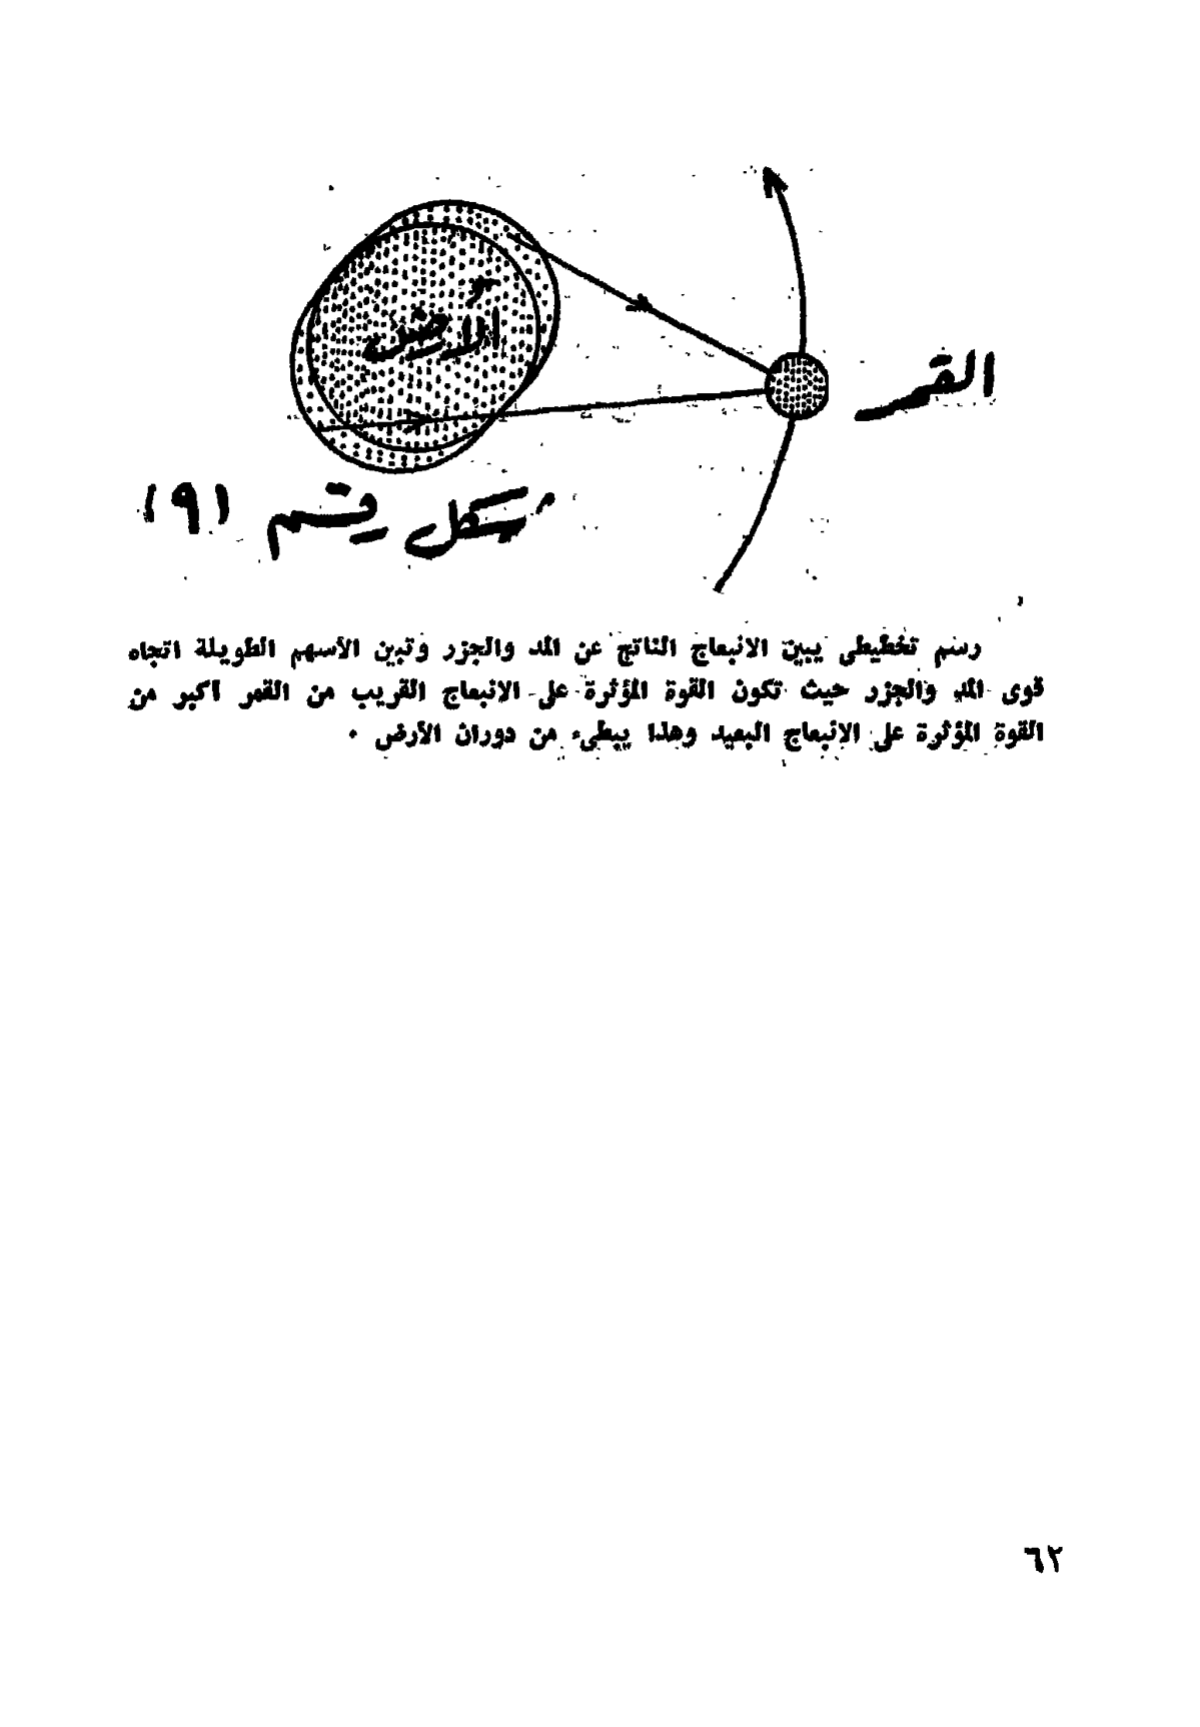 الأرض
القمر
شكل رقم (٩)
رسم تخطيطى يبين الانبعاج الناتج عن المد والجزر وتبين الأسهم الطويلة اتجاه
قوى المد والجزر حيث تكون القوة المؤثرة على الانبعاج القريب من القمر أكبر من
القوة المؤثرة على الانبعاج البعيد وهذا يبطىء من دوران الأرض ٠
٦٢